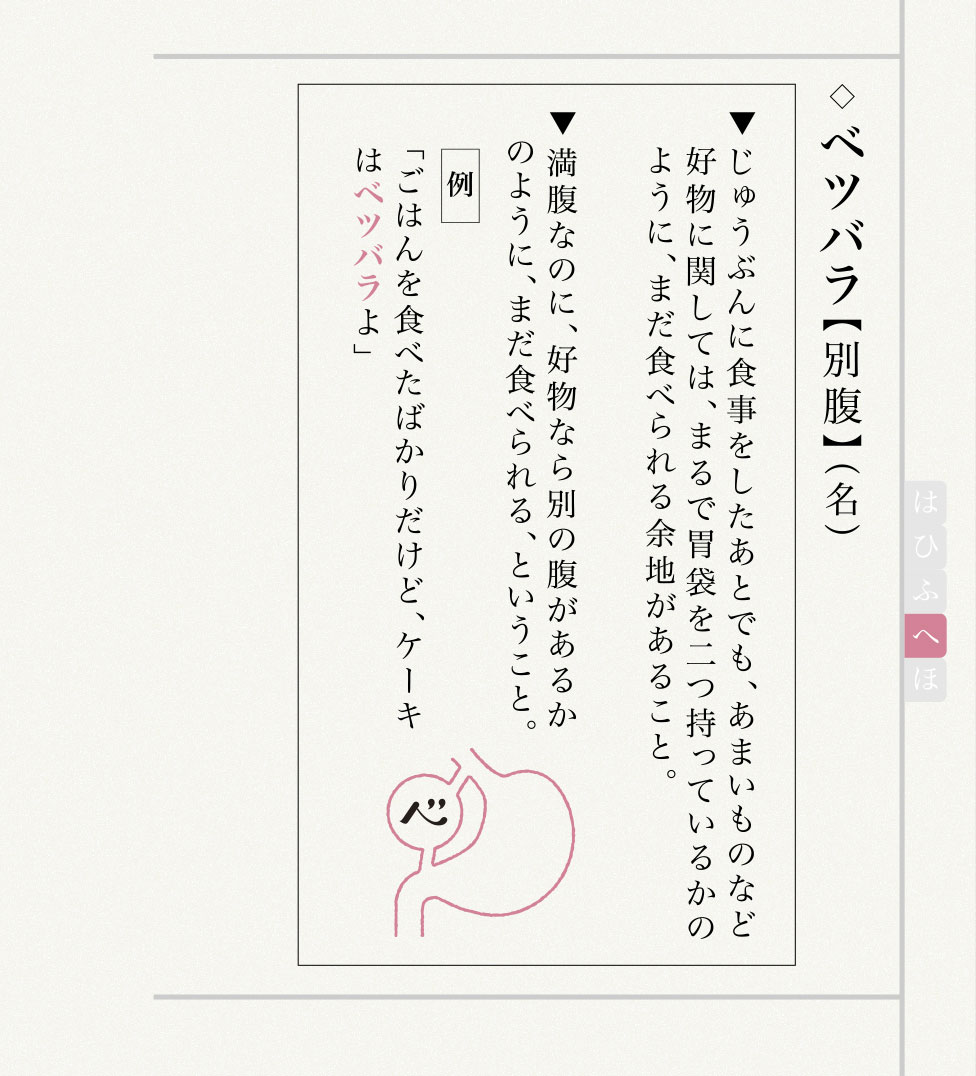 ◇ベツバラ【別腹】(名)
▼じゅうぶんに食事をしたあとでも、あまいものなど
好物に関しては、まるで胃袋を二つ持っているかの
ように、まだ食べられる余地があること。
▼満腹なのに、好物なら別の腹があるか
のように、まだ食べられる、ということ。
例
「ごはんを食べたばかりだけど、ケーキ
はベツバラよ」
べ
は
ひ
ふ
へ
ほ